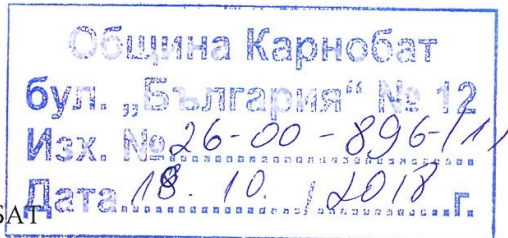 Община Карнобат
бул. „България“ № 12
Изх. № 26-00-896-/11
Дата 18. 10. / 2018 г.
SAT